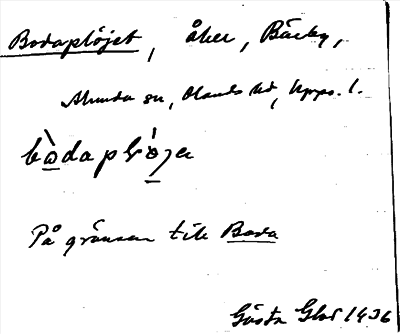 Bodaplöjet, åker, Bäcky,
Alunda sn, Olands hd, Upps. l.
På gränsen till Boda
Gösta 1936